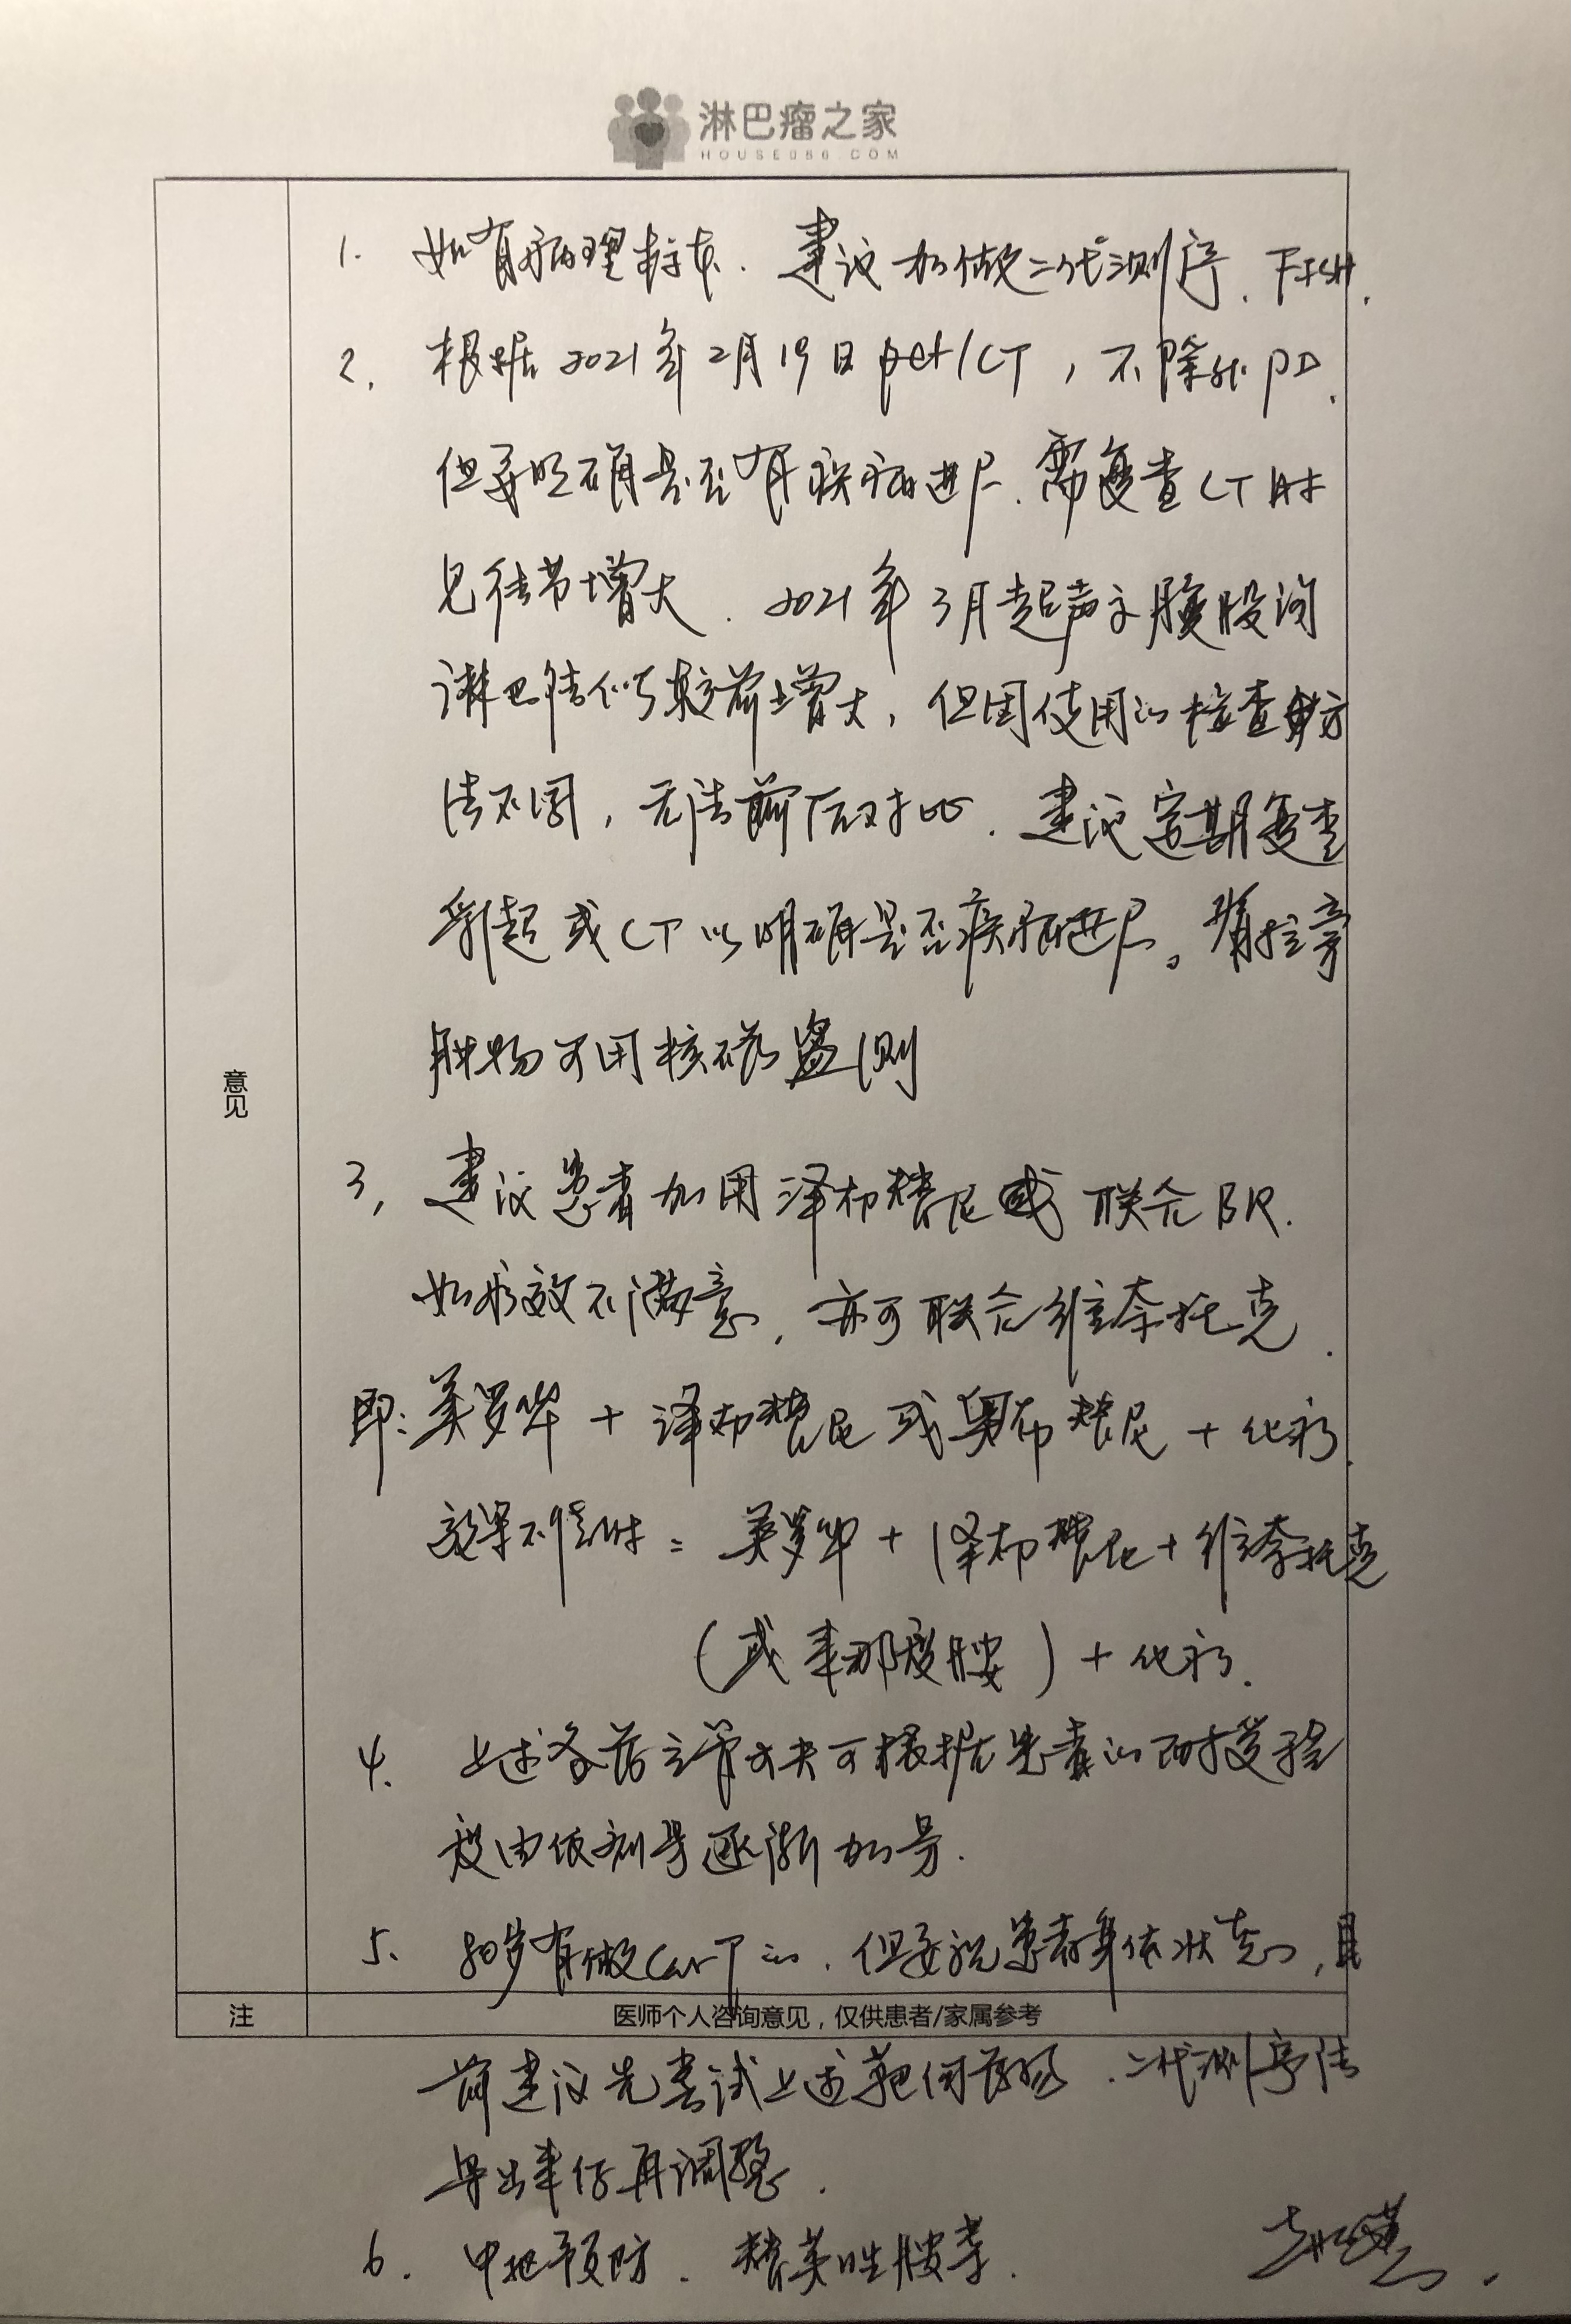 淋巴瘤之家
HOUSE086.COM
1. 如有病理标本. 建议加做二代测序、FISH.
2. 根据2021年2月19日pet/CT，不除外PD.
但要明确是否有疾病进展. 需复查CT时
见结节增大. 2021年3月超声示腹股沟
淋巴结似较前增大，但因使用的检查方
法不同，无法前后对比. 建议定期复查
或CT以明确是否疾病进展。
肿物可用核磁监测
意见
3, 建议患者加用泽布替尼或联合BR.
如疗效不满意, 亦可联合维奈托克.
即: 美罗华 + 泽布替尼或奥布替尼 + 化疗.
效果不佳时: 美罗华 + 泽布替尼 + 维奈托克
(或来那度胺) + 化疗.
4. 上述各药主管大夫可根据患者的耐受程
度由低剂量逐渐加量.
5. 80岁有做Car-T的. 但要视患者身体状态, 目
注 医师个人咨询意见，仅供患者/家属参考
前建议先尝试上述靶向药物. 二代测序结
果出来后再调整.
6. 中枢预防. 替莫唑胺等.